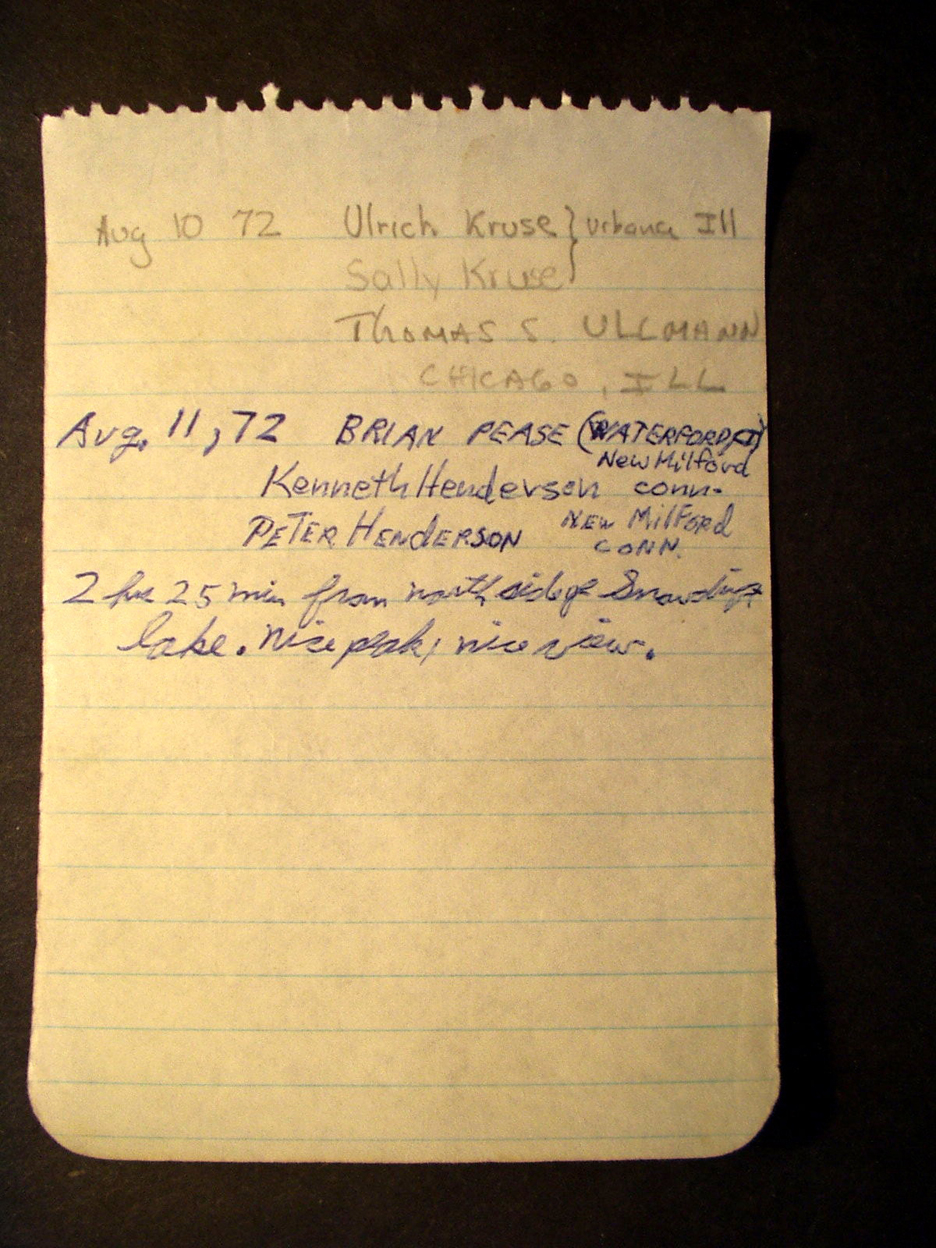 Aug 10 72 Ulrich Kruse } Urbana Ill
Sally Kruse
THOMAS S. ULLMANN
CHICAGO, ILL
Aug. 11, 72 BRIAN PEASE (WATERFORD, CT)
New Milford
Kenneth Henderson conn.
PETER HENDERSON NEW MilFORD
CONN.
2 hrs 25 min from north side of Snowdrift
lake. Nice peak, nice view.